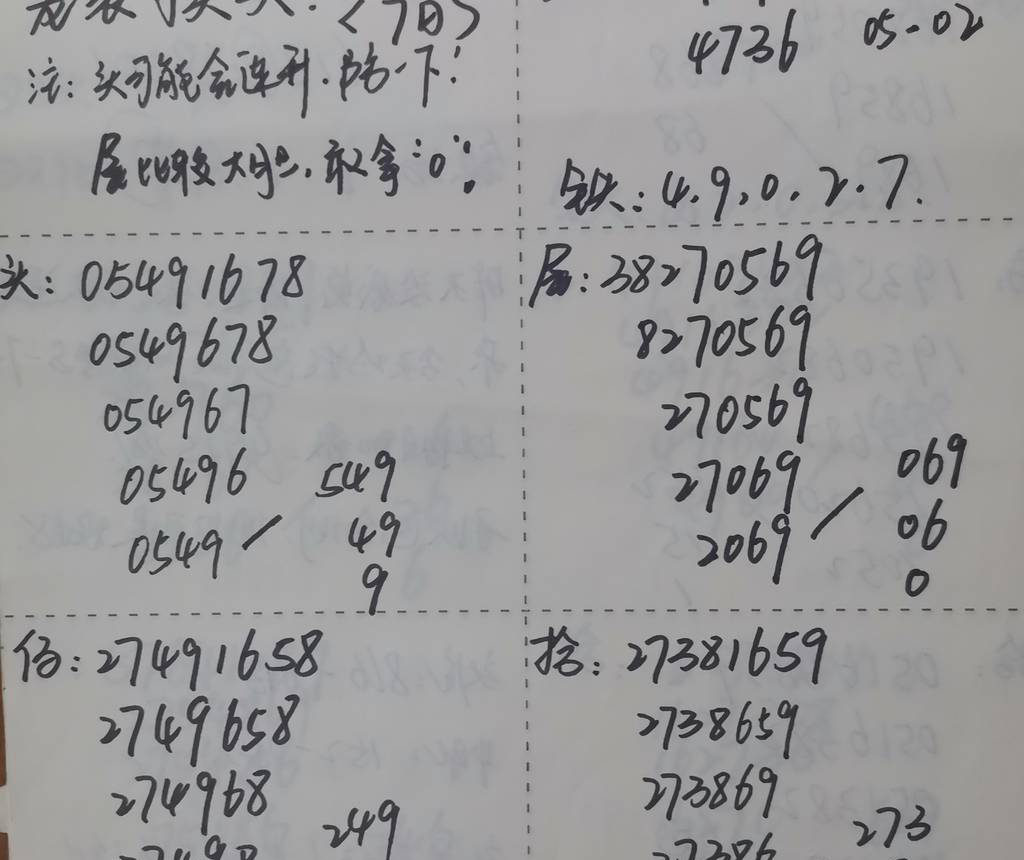 <7日>
注: 头可能会连开.防一下!
尾比较大胆.敢拿"0"!
4736 05-02
铁: 4.9.0.2.7.
头: 05491678
0549678
054967
05496 549
0549 / 49
9
尾: 38270569
8270569
270569
27069 069
2069 / 06
0
27491658
2749658
274968
249
27498
27381659
2738659
273869
273
27386